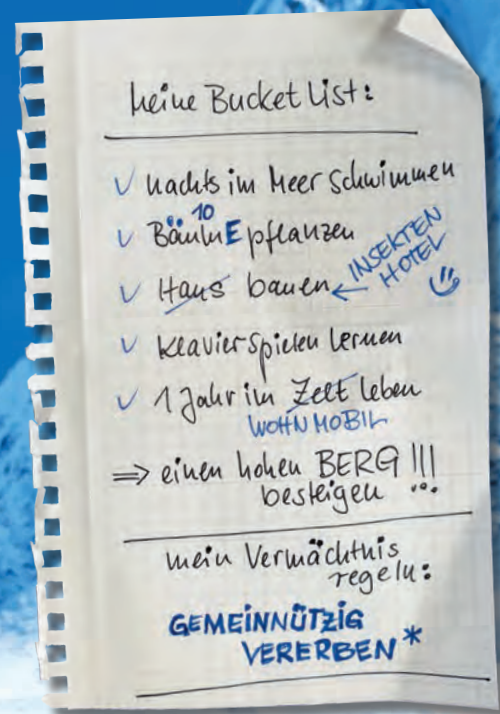 Meine Bucket List:
✓ nachts im Meer schwimmen
10
✓ BäumE pflanzen
✓ Haus bauen ← INSEKTEN
HOTEL
✓ Klavier spielen lernen
✓ 1 Jahr im Zelt leben
WOHNMOBIL
⇒ einen hohen BERG !!!
besteigen
mein Vermächtnis
regeln:
GEMEINNÜTZIG
VERERBEN*